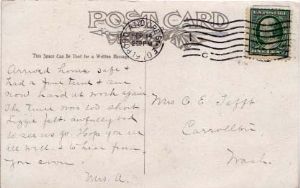 POST CARD
This Space Can Be Used for a Written Message
Arrived home safe &
had a fine time & am
now hard at work again
The time was too short
Lizzie felt awfully bad
to see us go. Hope you are
all well & to hear from
you soon.
Mrs. A.
Mrs C E Tefft
Carrollton
Wash.